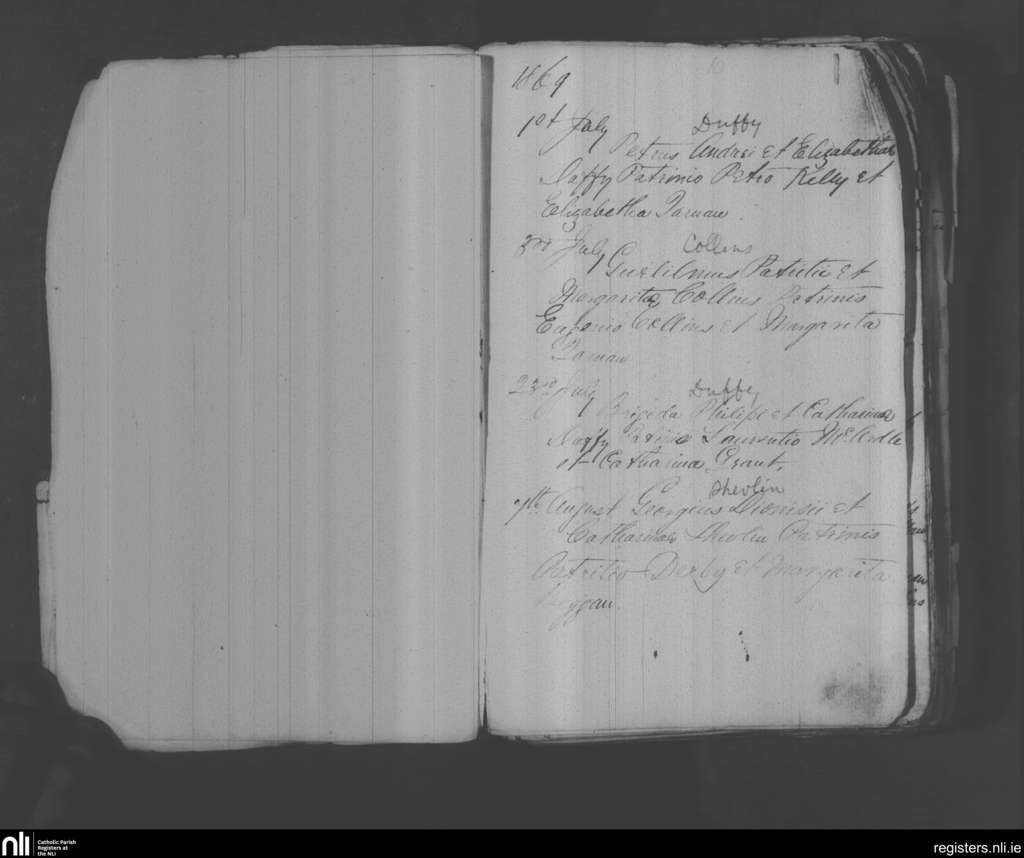 10
1869
1st July Duffy
Petrus Andrei et Elizabethae
Duffy Patrinio Petro Kelly et
Elizabetha
3rd July Collens
Guelilmus Patritii et
Margaritae Collins Patrinis
Eugenio Collins et Margarita
23rd July Duffy
Brigida Philipi et Catharinae
Duffy Laurentio McArdle
et Catharina Grant.
Shevlin
7th August Georgius Dionisii et
Catharinae Shevlin Patrinis
Patritio Derby et Margarita
nli Catholic Parish
Registers at
the NLI
registers.nli.ie